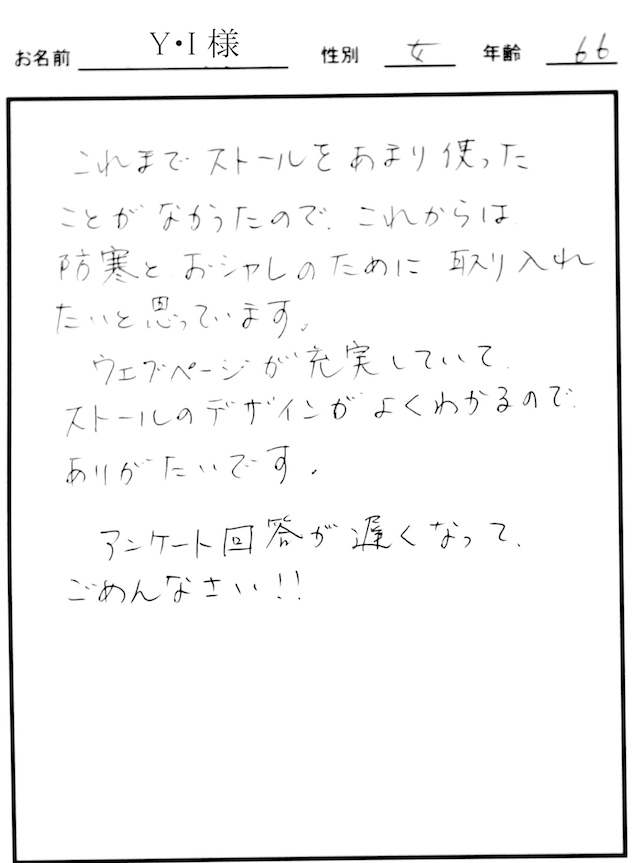 お名前 Y・I 様 性別 女 年齢 66
これまでストールをあまり使った
ことがなかったので、これからは
防寒とおシャレのために取り入れ
たいと思っています。
ウェブページが充実していて、
ストールのデザインがよくわかるので、
ありがたいです。
アンケート回答が遅くなって、
ごめんなさい!!